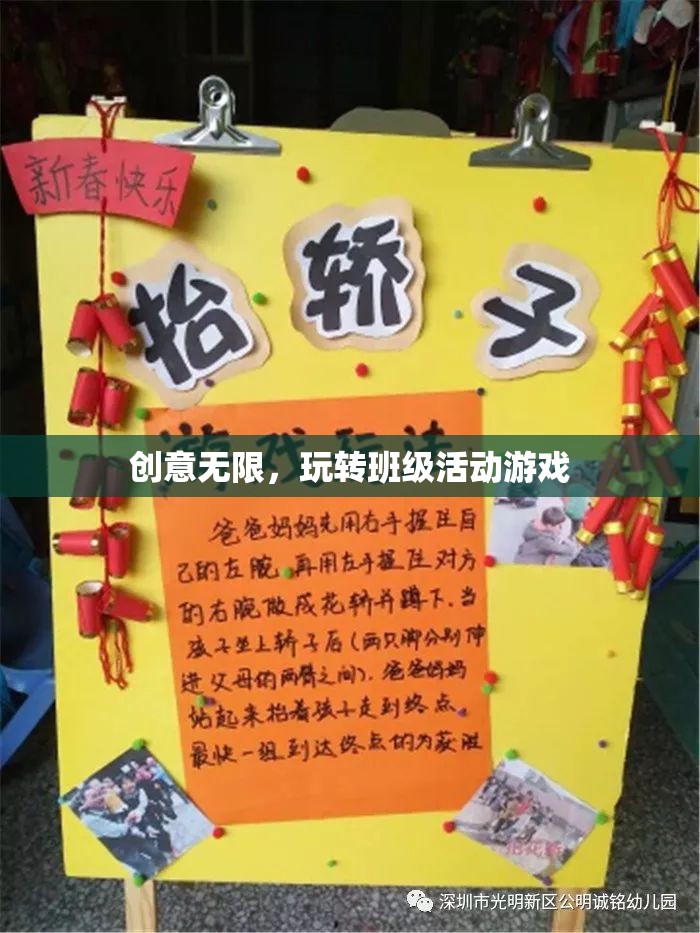 新春快乐
抬轿子
游戏玩法
创意无限，玩转班级活动游戏
爸爸妈妈先用右手握住自
己的左腕，再用左手握住对方
的右腕做成花轿并蹲下。当
孩子坐上轿子后（两只脚分别伸
进父母的两臂之间）。爸爸妈妈
站起来抬着孩子走到终点。
最快一组到达终点的为获胜
抬花轿
深圳市光明新区公明诚铭幼儿园